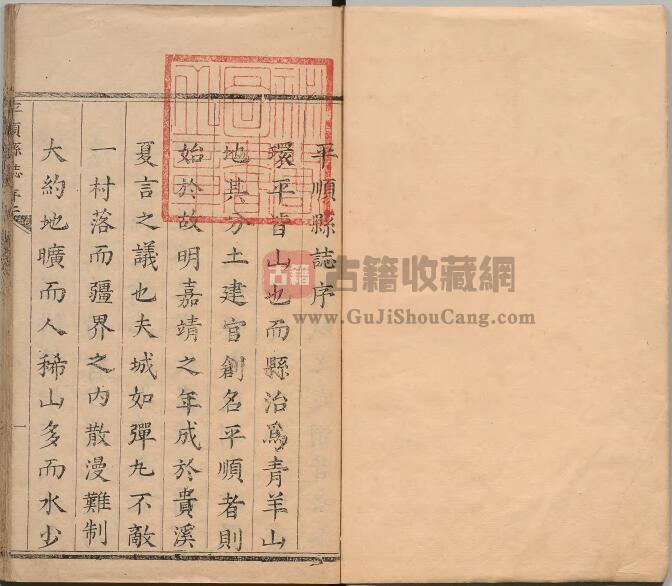 平順縣誌序
環平皆山也而縣治爲青羊山
地其分土建官創名平順者則
始於故明嘉靖之年成於貴溪
夏言之議也夫城如彈丸不敵
一村落而疆界之内散漫難制
大約地曠而人稀山多而水少
平順縣誌序
一
古籍
古籍收藏網
www.GuJiShouCang.com